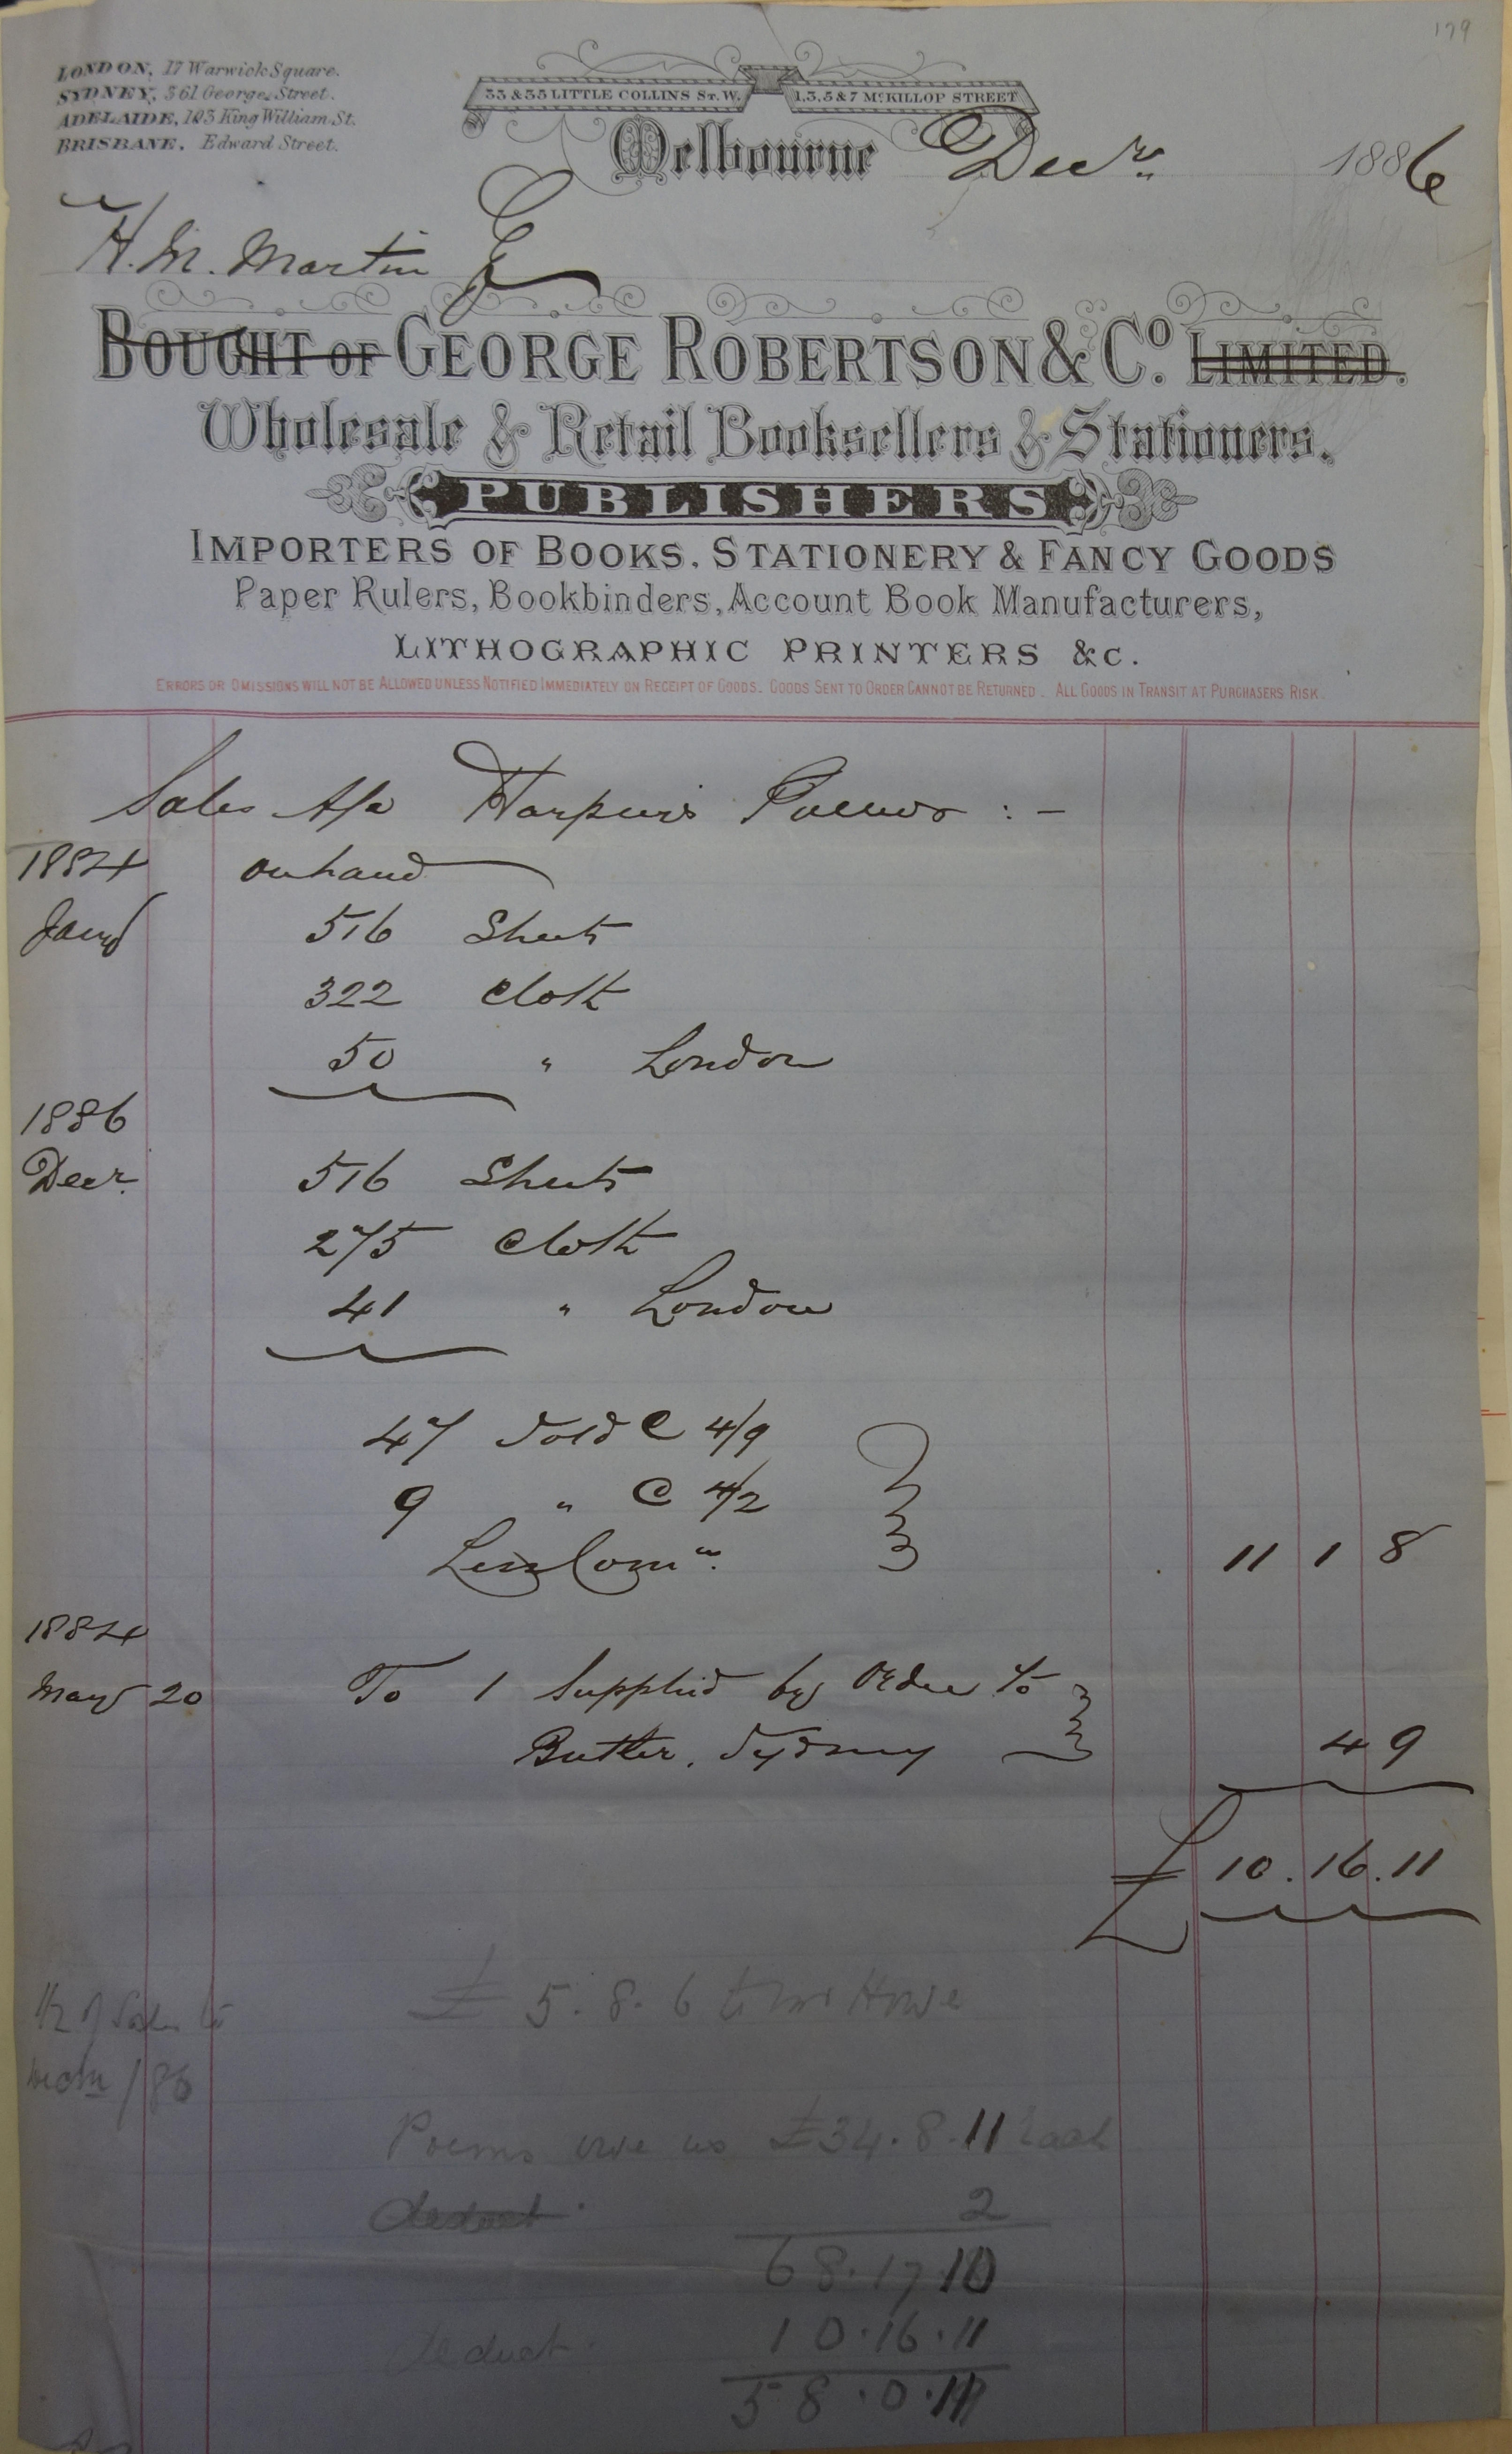 179
LONDON, 17 Warwick Square.
SYDNEY, 361 George Street.
ADELAIDE, 103 King William St.
BRISBANE, Edward Street.
33 & 35 LITTLE COLLINS ST. W. 1, 3, 5 & 7 McKILLOP STREET
Melbourne Decr. 1886
H. M. Martin E
BOUGHT OF GEORGE ROBERTSON & Co. LIMITED.
Wholesale & Retail Booksellers & Stationers.
PUBLISHERS
IMPORTERS OF BOOKS, STATIONERY & FANCY GOODS
Paper Rulers, Bookbinders, Account Book Manufacturers,
LITHOGRAPHIC PRINTERS &c.
ERRORS OR OMISSIONS WILL NOT BE ALLOWED UNLESS NOTIFIED IMMEDIATELY ON RECEIPT OF GOODS. GOODS SENT TO ORDER CANNOT BE RETURNED. ALL GOODS IN TRANSIT AT PURCHASERS RISK.
Sales A/c Harpur's Poems :-
1884 on hand
Jany 516 Sheets
322 Cloth
50 " London
1886
Decr. 516 Sheets
275 Cloth
41 " London
47 Sold @ 4/9
9 " @ 4/2
Less Comn. 11 1 8
1884
May 20 To 1 Supplied by Order to
Butler, Sydney 4 9
£ 10. 16. 11
£ 5. 8. 6 to Mr Howe
1/2 of Sales to
Decr /86
Poems owe us £34. 8. 11 Each
deduct. 2
68. 17 10
deduct. 10. 16. 11
58. 0. 11